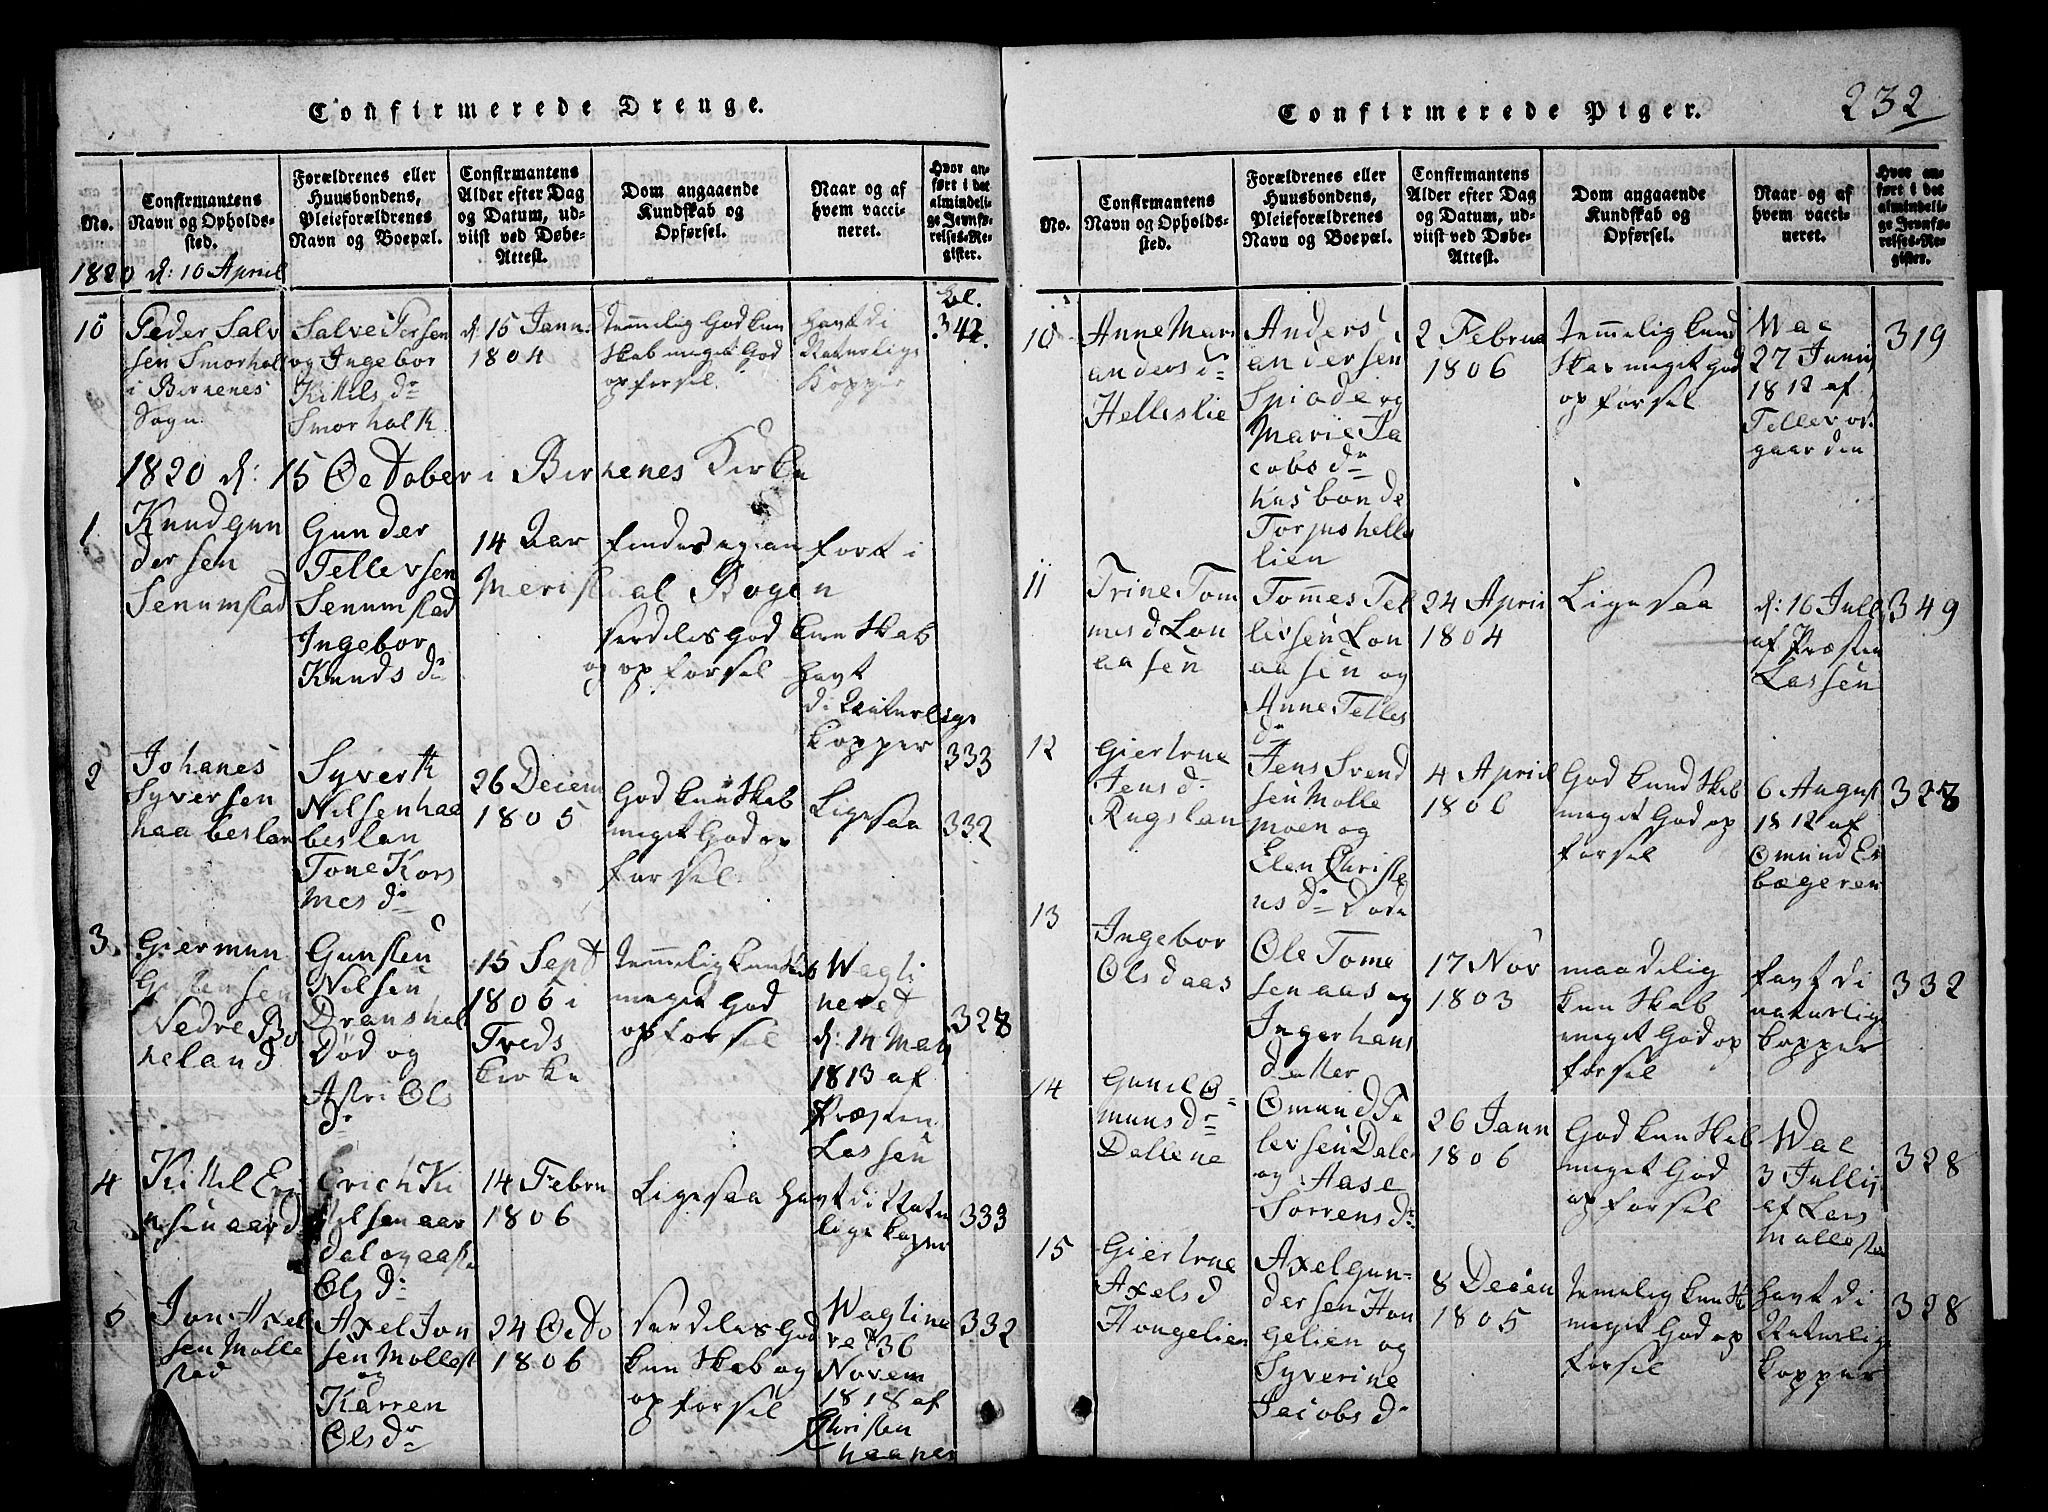 Confirmerede Drenge.
No.
Confirmantens
Navn og Opholds-
sted.
Forældrenes eller
Huusbondens,
Pleieforældrenes
Navn og Boepæl.
Confirmantens
Alder efter Dag
og Datum, ud-
viist ved Døbe-
Attest.
Dom angaaende
Kundskab og
Opførsel.
Naar og af
hvem vacci-
neret.
Hvor an-
ført i det
almindeli-
ge Jevnfø-
relses-Re-
gister.
1820 d: 10 April
10
Peder Salv
sen Smorhol
i Birkenes
Sogn
Salve Persen
og Ingebor
Kittels dr
Smorholt
d: 15 Jann
1804
temmelig God kun
skab meget God
opforsel
havt di
Naturlige
Kopper
bl.
342.
1820 d: 15 October i Birkenes Kirke
1
Knud gun
dersen
Senumstad
Gunder
Tellevsen
Senumstad
Ingebor
Knuds dr
14 Aar
findes
fort i
Meristaal Bogen
serdeles God kunskab
og opforsel
havt
di Naturlige
kopper
333
2
Johanes
Syversen
haabeslan
Syvert
Nilsen haa
beslan
Tone Kors
mes dr
26 Decem
1805
God kunskab
meget God op
forsel
Ligesaa
332
3.
Giermun
Gu
Nedre Bo
heland
Gunsten
Nilsen
Dranshol
Død og
Astri Ols
dr
15 Sept
1806 i
Treds
kirke
temmelig kunskab
meget God
opforsel
Wagli
neret
d: 14 May
1813 af
Præsten
Lassen
328
4
Kittel Eri
sen aard
Erich Ki
telsen aar
dal og aaste
Ols dr
14 Febru
1806
Ligesaa
havt di Natu
lige kopper
333
5
Jon Axel
sen Molle
stad
Axel Jon
sen Mollest
og
Karren
Ols dr
24 Octo
1806
serdeles God
kunskab og
opforsel
Wagline
ret 36
Novem
1818 af
Christen
haanes
332
Confirmerede Piger.
232
No.
Confirmantens
Navn og Opholds-
sted.
Forældrenes eller
Huusbondens,
Pleieforældrenes
Navn og Boepæl.
Confirmantens
Alder efter Dag
og Datum, ud-
viist ved Døbe-
Attest.
Dom angaaende
Kundskab og
Opførsel.
Naar og af
hvem vacci-
neret.
Hvor an-
ført i det
almindeli-
ge Jevnfø-
relses-Re-
gister.
10
Anne Mari
anders dr
Helleslie
Anders
andersen
Spiode og
Marie Ja
cobs dr
husbonde
Torjus helle
lien
2 Februa
1806
temmelig kund
skav meget god
opforsel
Wac
27 Junij
1812 af
Tellev od
gaarden
319
11
Trine Tom
mes d Lon
aasen
Tommes Tel
levsen Lon
aasen og
Anne Telles
dr
24 April
1804
Ligesaa
d: 16 Juli
af Præsten
Lassen
349
12
Giertrue
Jens d.
Rugslan
Jens Svend
sen Molle
moen og
Elen Christe
ns dr Døde
4 April
1806
God kundskab
meget God op
forsel
6 August
1812 af
Omund Er
bægeren
328
13
Ingebor
Ols d aas
Ole Tome
sen aas og
Inger hans
datter
17 Nov
1803
maadelig
kunskab
meget God op
forsel
havt di
naturlige
kopper
332
14
Gunil O
muns dr
Dallene
Omund Te
levsen Dale
og Aase
Sorrens dr
26 Jann
1806
God kunskab
meget God
opforsel
Wac
3 Jullij
af Lars
Mollesta
328
15
Giertrue
Axels d
Hongelien
Axel gun-
dersen Hon
gelien og
Syverine
Jacobs dr
8 Decen
1805
temelig kunsk
meget God op
forsel
havt di
Naturlige
kopper
328